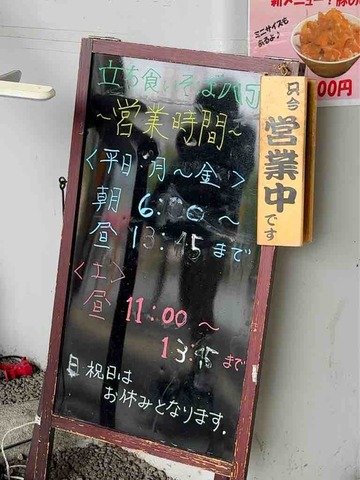 新メニュー！豚の
ミニサイズも
あるよ♪
00円
立ち食いそば八丁
～営業時間～
〈平日・月～金〉
朝 6:00～
昼 13:45まで
〈土〉
昼 11:00～
13:45まで
日 祝日は
お休みとなります。
只今
営業中
です